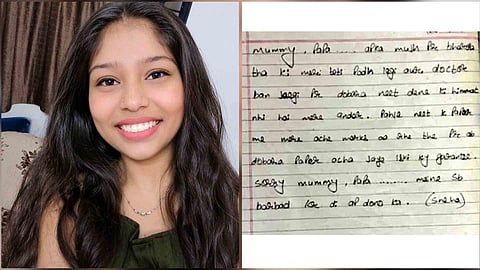 mummy, Papa ..... apka mujh Pe bharosa
tha ki meri beti Padh legi aur doctor
ban jaegi Pr dobara neet dene ki himmat
nhi hai mere andar. Pahle neet k Paper
me mere ache marks aa rhe the Pr ab
dobara Paper acha jaye iski ky garantee.
sorry mummy, Papa ......... maine sb
barbad kr di ap dono ka. (Sneha)